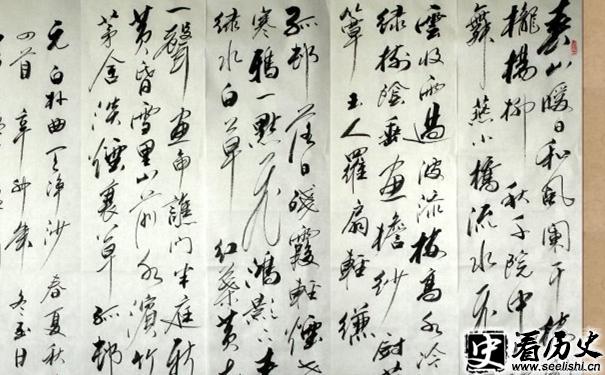 春山暖日和風闌干
櫳楊柳 秋千院中
舞燕小橋流水飛
雲收雨過波添樓高水冷
綠樹陰垂畫檐紗廚
簟玉人羅扇輕縑
孤邨落日殘霞輕煙
寒鴉一點飛鴻影下
綠水白草 紅葉黃
一聲畫角譙門半庭新
黃昏雪里山前水濱竹
茅舍淡煙衰草孤邨
元白朴曲天淨沙 春夏秋
四首辛卯年 冬至日
看历史
www.seelishi.cn